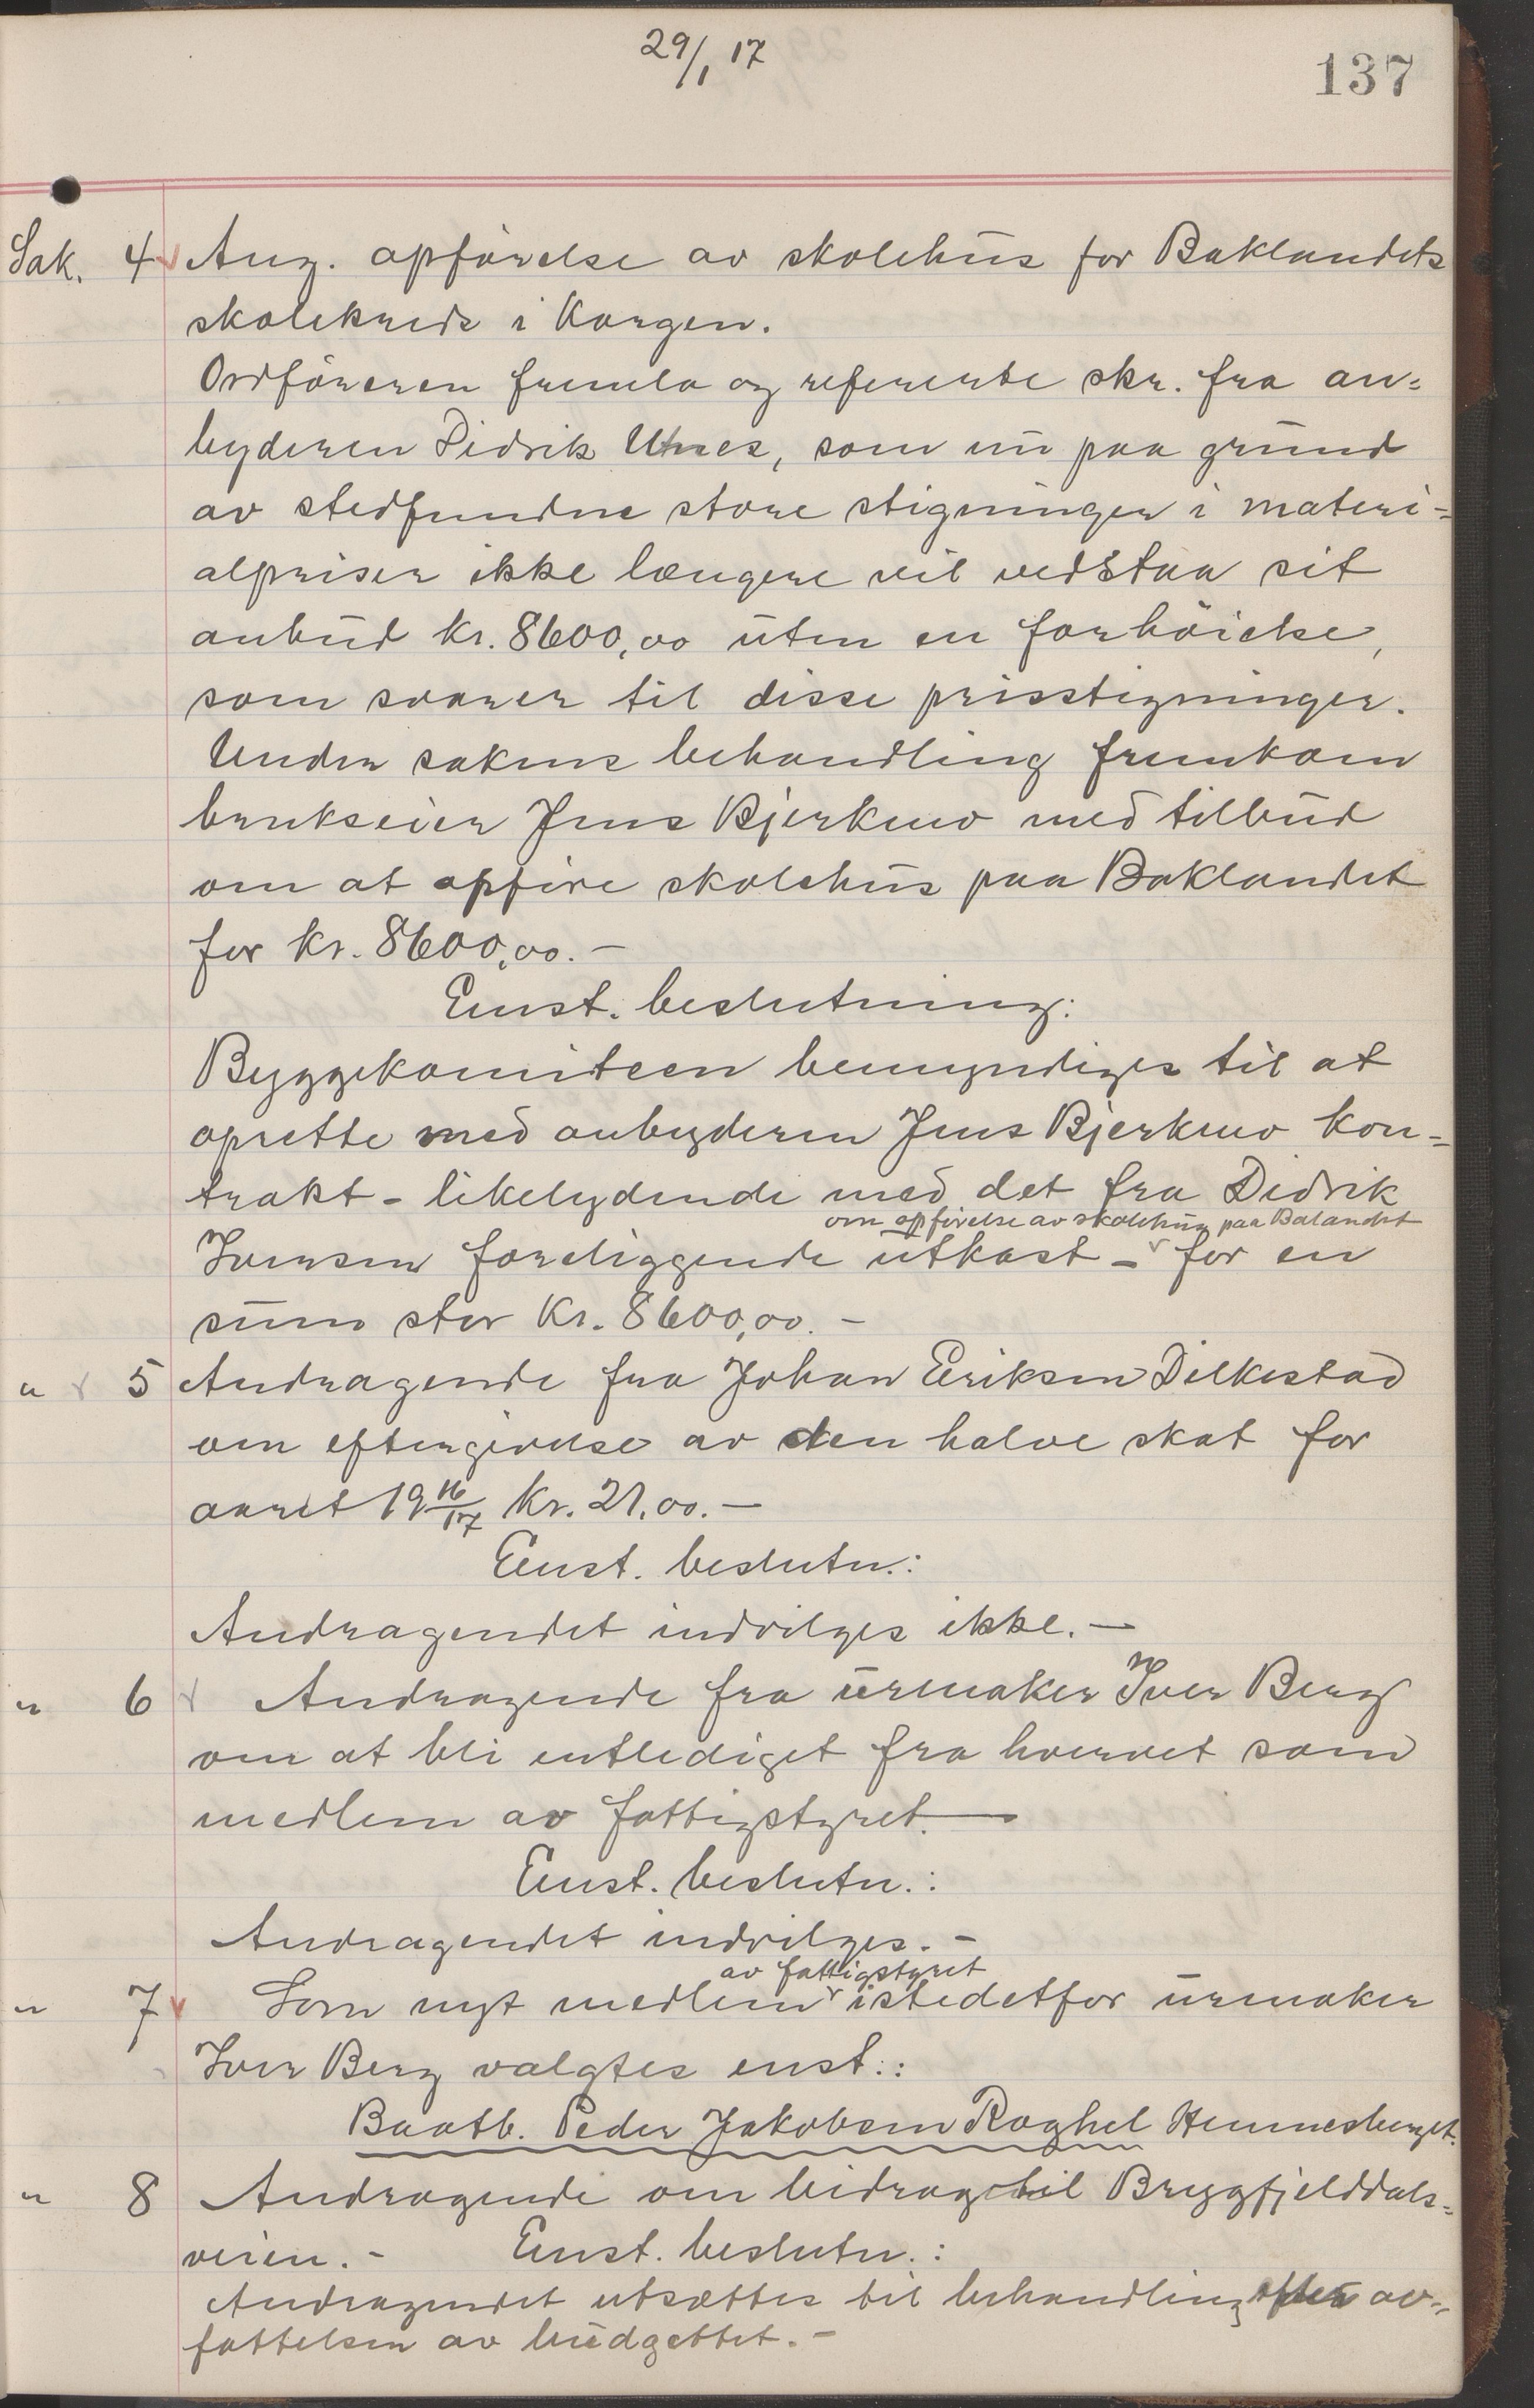 29/1 17
137
Sak. 4 Ang. opførelse av skolehus for Baklandets
skolekreds i Korgen.
Ordføreren fremla og refererte skr. fra an=
byderen Didrik Utnes, som nu paa grund
av stedfundne store stigninger i materi-
alpriser ikke længere vil vedstaa sit
anbud kr. 8600,00 uten en forhöielse,
som svarer til disse prisstigninger.
Under sakens behandling fremkom
brukseier Jens Bjerkmo med tilbud
om at opføre skolehus paa Baklandet
for kr. 8600,00. —
Enst. beslutning:
Byggekomiteen bemyndiges til at
oprette med anbyderen Jens Bjerkmo kon=
trakt - likelydende med det fra Didrik
om opførelse av skolehus paa Balandet
Iversen foreliggende utkast - for en
sum stor Kr. 8600,00. —
" 5 Andragende fra Johan Eriksen Dilkestad
om eftergivelse av den halve skat for
aaret 19 16/17 Kr. 21,00. —
Enst. beslutn.:
Andragendet indvilges ikke. —
" 6 Andragende fra urmaker Iver Berg
om at bli entlediget fra hvervet som
medlem av fattigstyret. —
Enst. beslutn.:
Andragendet indvilges. —
av fattigstyret
" 7 Som nyt medlem istedetfor urmaker
Iver Berg valgtes enst.:
Baatb. Peder Jakobsen Røghel Hemnesberget.
" 8 Andragende om bidrag til Bryggfjelddals=
veien. - Enst. beslutn.:
Andragendet utsættes til behandling efter av=
fattelsen av budgettet. —